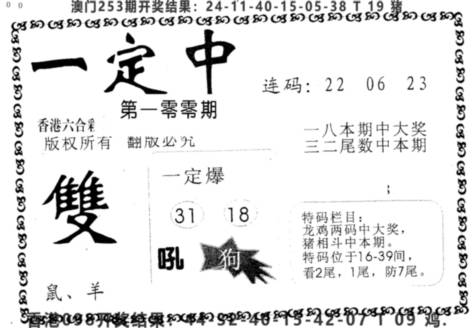 澳门253期开奖结果：24-11-40-15-05-38 T 19 猪
一定中
第一零零期
连码：22 06 23
香港六合彩
版权所有 翻版必究
一八本期中大奖
三二尾数中本期
雙
鼠、羊
一定爆
31 18
吼 狗
特码栏目：
龙鸡两码中大奖，
猪相斗中本期。
特码位于16-39间，
看2尾，1尾，防7尾。
香港098开奖结果：44-32-40-15-42-07 T 09 鸡.